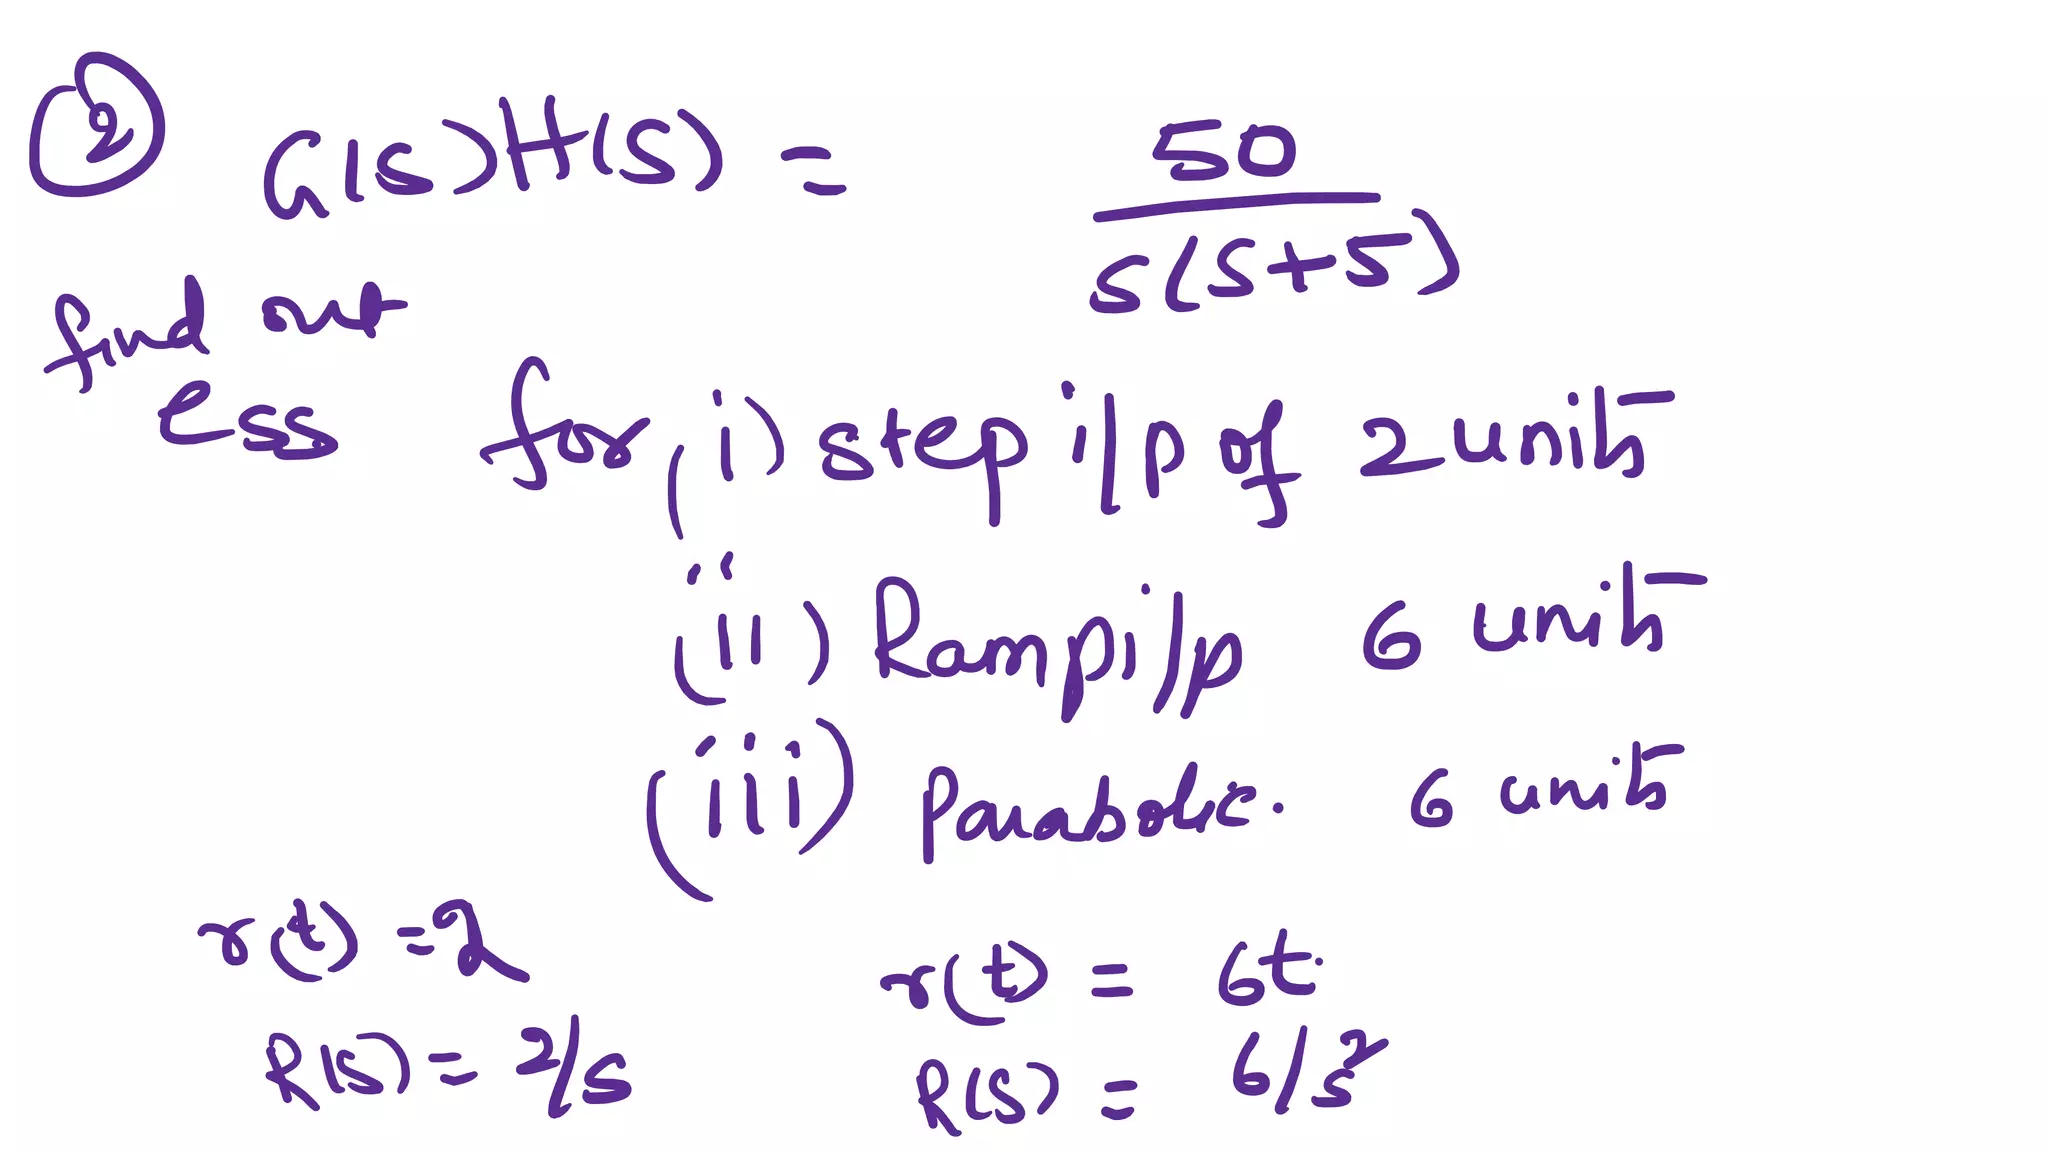 ② G(s)H(s) = 50 / s(s+5)
find out
ess for, (i) step i/p of 2 units
(ii) Ramp i/p 6 units
(iii) Parabolic. 6 units
r(t) = 2 r(t) = 6t.
R(s) = 2/s R(s) = 6/s²